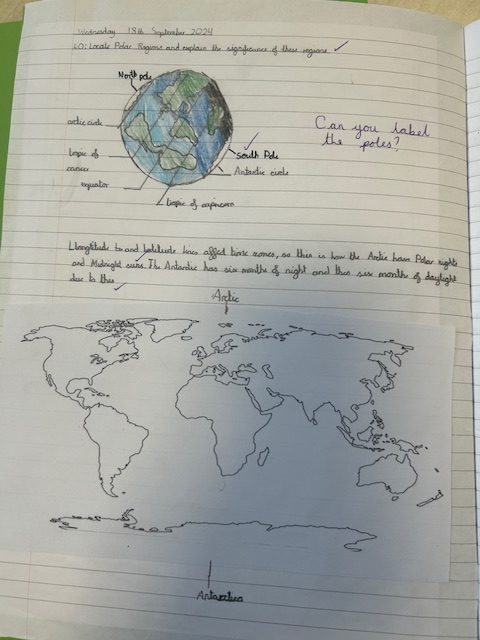 Wednesday 18th September 2024
LO: Locate Polar Regions and explain the significance of these regions
North pole
arctic circle
Can you label
the poles?
tropic of
cancer
South Pole
Antarctic circle
equator
tropic of capricorn
Longtitude and latitude lines affect time zones, so this is how the Arctic has Polar nights
and Midnight suns. The Antarctic has six months of night and then six months of daylight
due to this
Arctic
Antarctica